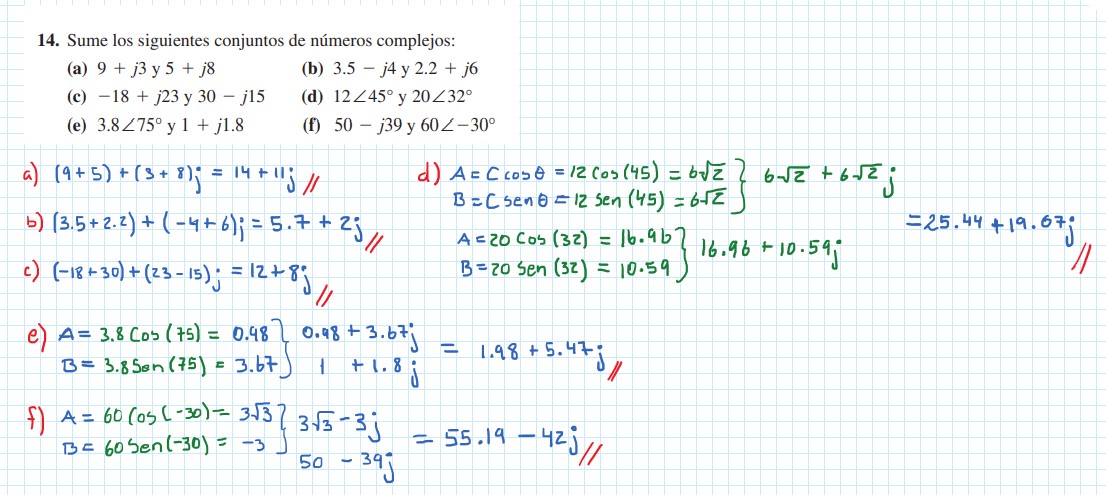 14. Sume los siguientes conjuntos de números complejos:
(a) 9 + j3 y 5 + j8 (b) 3.5 − j4 y 2.2 + j6
(c) −18 + j23 y 30 − j15 (d) 12∠45° y 20∠32°
(e) 3.8∠75° y 1 + j1.8 (f) 50 − j39 y 60∠−30°
a) (9+5) + (3+8)j = 14+11j //
b) (3.5+2.2) + (-4+6)j = 5.7 + 2j //
c) (-18+30)+(23-15)j = 12+8j //
d) A = C cos θ = 12 Cos (45) = 6√2 } 6√2 + 6√2 j
B = C sen θ = 12 Sen (45) = 6√2
A = 20 Cos (32) = 16.96 } 16.96 + 10.59j
B = 20 Sen (32) = 10.59
= 25.44 + 19.07j //
e) A = 3.8 Cos (75) = 0.98 } 0.98 + 3.67j
B = 3.8 Sen (75) = 3.67 1 + 1.8 j
= 1.98 + 5.47j //
f) A = 60 Cos (-30) = 3√3 } 3√3 - 3j
B = 60 Sen (-30) = -3
50 - 39j
= 55.19 - 42j //